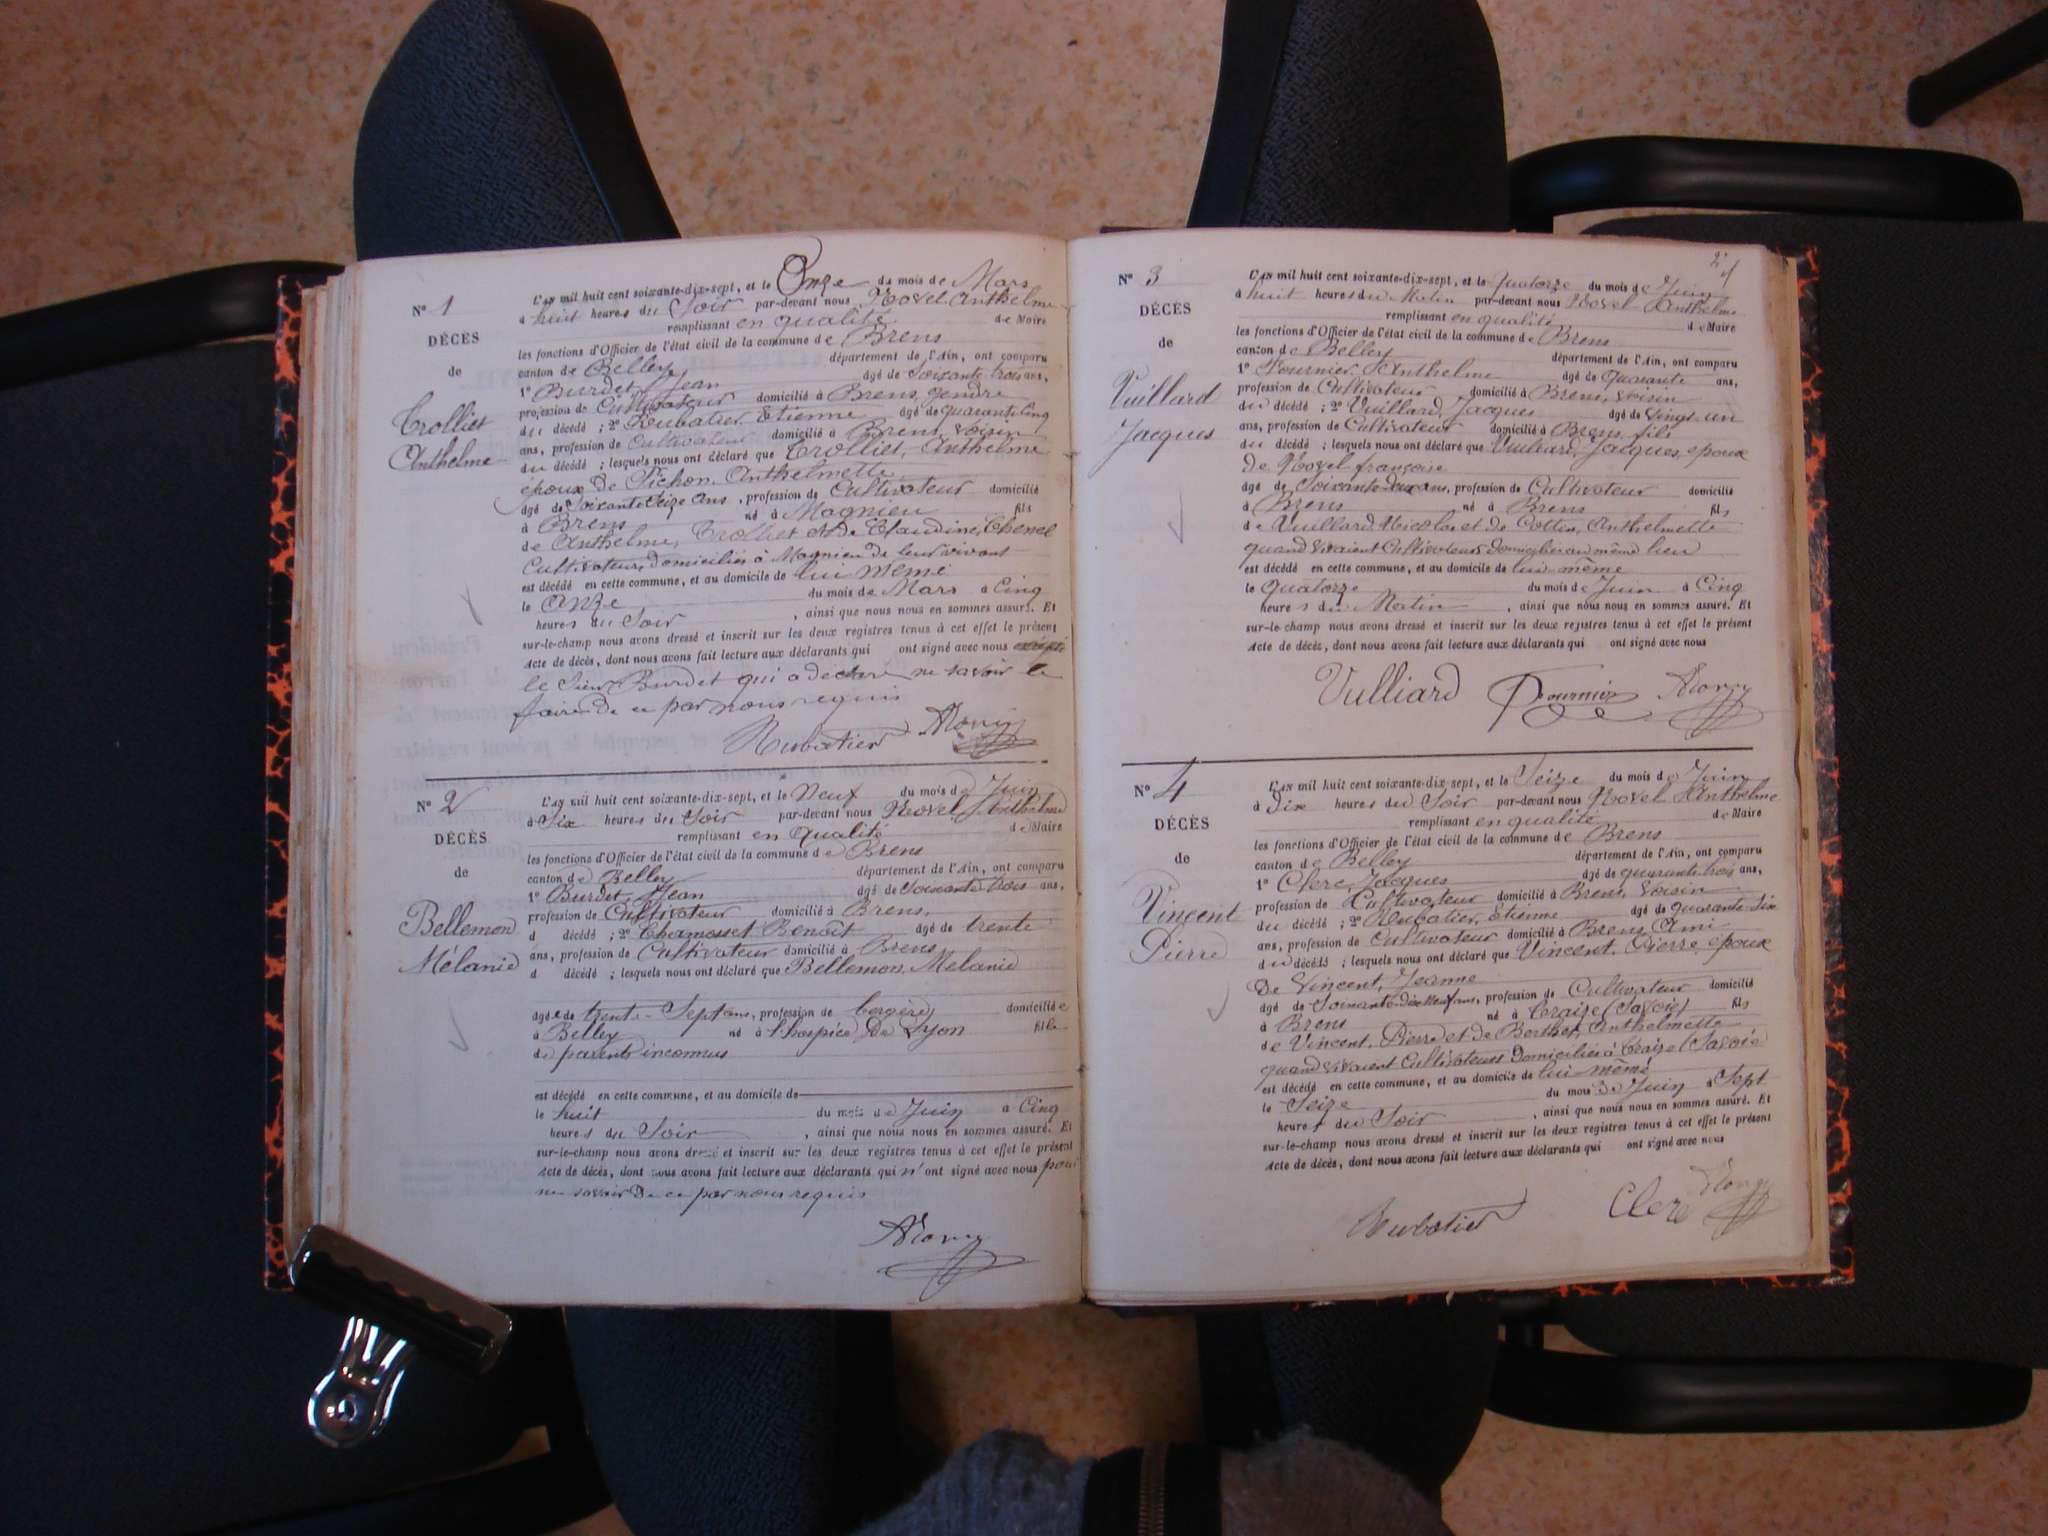 N° 1
DÉCÈS
de
Trolliet
Anthelme
L'AN mil huit cent soixante-dix-sept, et le Onze du mois de Mars
à huit heures du Soir par-devant nous Novel Anthelme
remplissant en qualité de Maire
les fonctions d'Officier de l'état civil de la commune de Brens
canton de Belley département de l'Ain, ont comparu
1° Burdet, Jean âgé de Soixante trois ans,
profession de Cultivateur domicilié à Brens, gendre
du décédé ; 2° Rubatier Etienne âgé de quarante cinq
ans, profession de Cultivateur domicilié à Brens, voisin
du décédé ; lesquels nous ont déclaré que Trolliet, Anthelme
époux de Pichon, Anthelmette
âgé de Soixante Seize ans, profession de Cultivateur domicilié
à Brens né à Magnieu fils
de Anthelme, Trolliet et de Claudine, Chenel
Cultivateurs domiciliés à Magnieu de leur vivant
est décédé en cette commune, et au domicile de lui même
le Onze du mois de Mars à Cinq
heures du Soir, ainsi que nous nous en sommes assuré. Et
sur-le-champ nous avons dressé et inscrit sur les deux registres tenus à cet effet le présent
acte de décès, dont nous avons fait lecture aux déclarants qui ont signé avec nous excepté
le Sieur Burdet qui a déclaré ne savoir le
faire de ce par nous requis
Rubatier
N° 2
DÉCÈS
de
Bellemon
Mélanie
L'AN mil huit cent soixante-dix-sept, et le Neuf du mois de Juin
à Six heures du Soir par-devant nous Novel Anthelme
remplissant en qualité de Maire
les fonctions d'Officier de l'état civil de la commune de Brens
canton de Belley département de l'Ain, ont comparu
1° Burdet, Jean âgé de soixante trois ans,
profession de Cultivateur domicilié à Brens,
d décédé ; 2° Chamosset Benoît âgé de trente
ans, profession de Cultivateur domicilié à Brens
d décédé ; lesquels nous ont déclaré que Bellemon, Mélanie
âgée de trente-Sept ans, profession de bergère domiciliée
à Belley né à l'hospice De Lyon fille
de parents inconnus
est décédé en cette commune, et au domicile de
le huit du mois de Juin à Cinq
heures du Soir, ainsi que nous nous en sommes assuré. Et
sur-le-champ nous avons dressé et inscrit sur les deux registres tenus à cet effet le présent
acte de décès, dont nous avons fait lecture aux déclarants qui n'ont signé avec nous pour
ne savoir De ce par nous requis
N° 3
DÉCÈS
de
Vuillard
Jacques
L'AN mil huit cent soixante-dix-sept, et le Quatorze du mois de Juin
à huit heures du Matin par-devant nous Novel Anthelme
remplissant en qualité de Maire
les fonctions d'Officier de l'état civil de la commune de Brens
canton de Belley département de l'Ain, ont comparu
1° Fournier Anthelme âgé de quarante ans,
profession de Cultivateur domicilié à Brens, voisin
du décédé ; 2° Vuillard, Jacques âgé de vingt un
ans, profession de Cultivateur domicilié à Brens, fils
du décédé ; lesquels nous ont déclaré que Vuillard, Jacques, époux
de Novel françoise
âgé de soixante deux ans, profession de Cultivateur domicilié
à Brens né à Brens fils
de Vuillard Nicolas et de Cottin, Anthelmette
quand vivaient Cultivateurs domiciliés au même lieu
est décédé en cette commune, et au domicile de lui-même
le quatorze du mois de Juin à Cinq
heures du Matin, ainsi que nous nous en sommes assuré. Et
sur-le-champ nous avons dressé et inscrit sur les deux registres tenus à cet effet le présent
acte de décès, dont nous avons fait lecture aux déclarants qui ont signé avec nous
Vulliard Fournier
N° 4
DÉCÈS
de
Vincent
Pierre
L'AN mil huit cent soixante-dix-sept, et le Seize du mois de Juin
à Dix heures du Soir par-devant nous Novel Anthelme
remplissant en qualité de Maire
les fonctions d'Officier de l'état civil de la commune de Brens
canton de Belley département de l'Ain, ont comparu
1° Clerc, Jacques âgé de quarante trois ans,
profession de Cultivateur domicilié à Brens, voisin
du décédé ; 2° Rubatier, Etienne âgé de quarante-six
ans, profession de Cultivateur domicilié à Brens, Ami
du décédé ; lesquels nous ont déclaré que Vincent, Pierre, époux
De Vincent, Jeanne
âgé de soixante-dix neuf ans, profession de Cultivateur domicilié
à Brens né à Traize (Savoie) fils
de Vincent, Pierre et de Berthet, Anthelmette
quand vivaient Cultivateurs Domiciliés à Traize (Savoie)
est décédé en cette commune, et au domicile de lui-même
le Seize du mois de Juin à Sept
heures du Soir, ainsi que nous nous en sommes assuré. Et
sur-le-champ nous avons dressé et inscrit sur les deux registres tenus à cet effet le présent
acte de décès, dont nous avons fait lecture aux déclarants qui ont signé avec nous
Rubatier Clerc